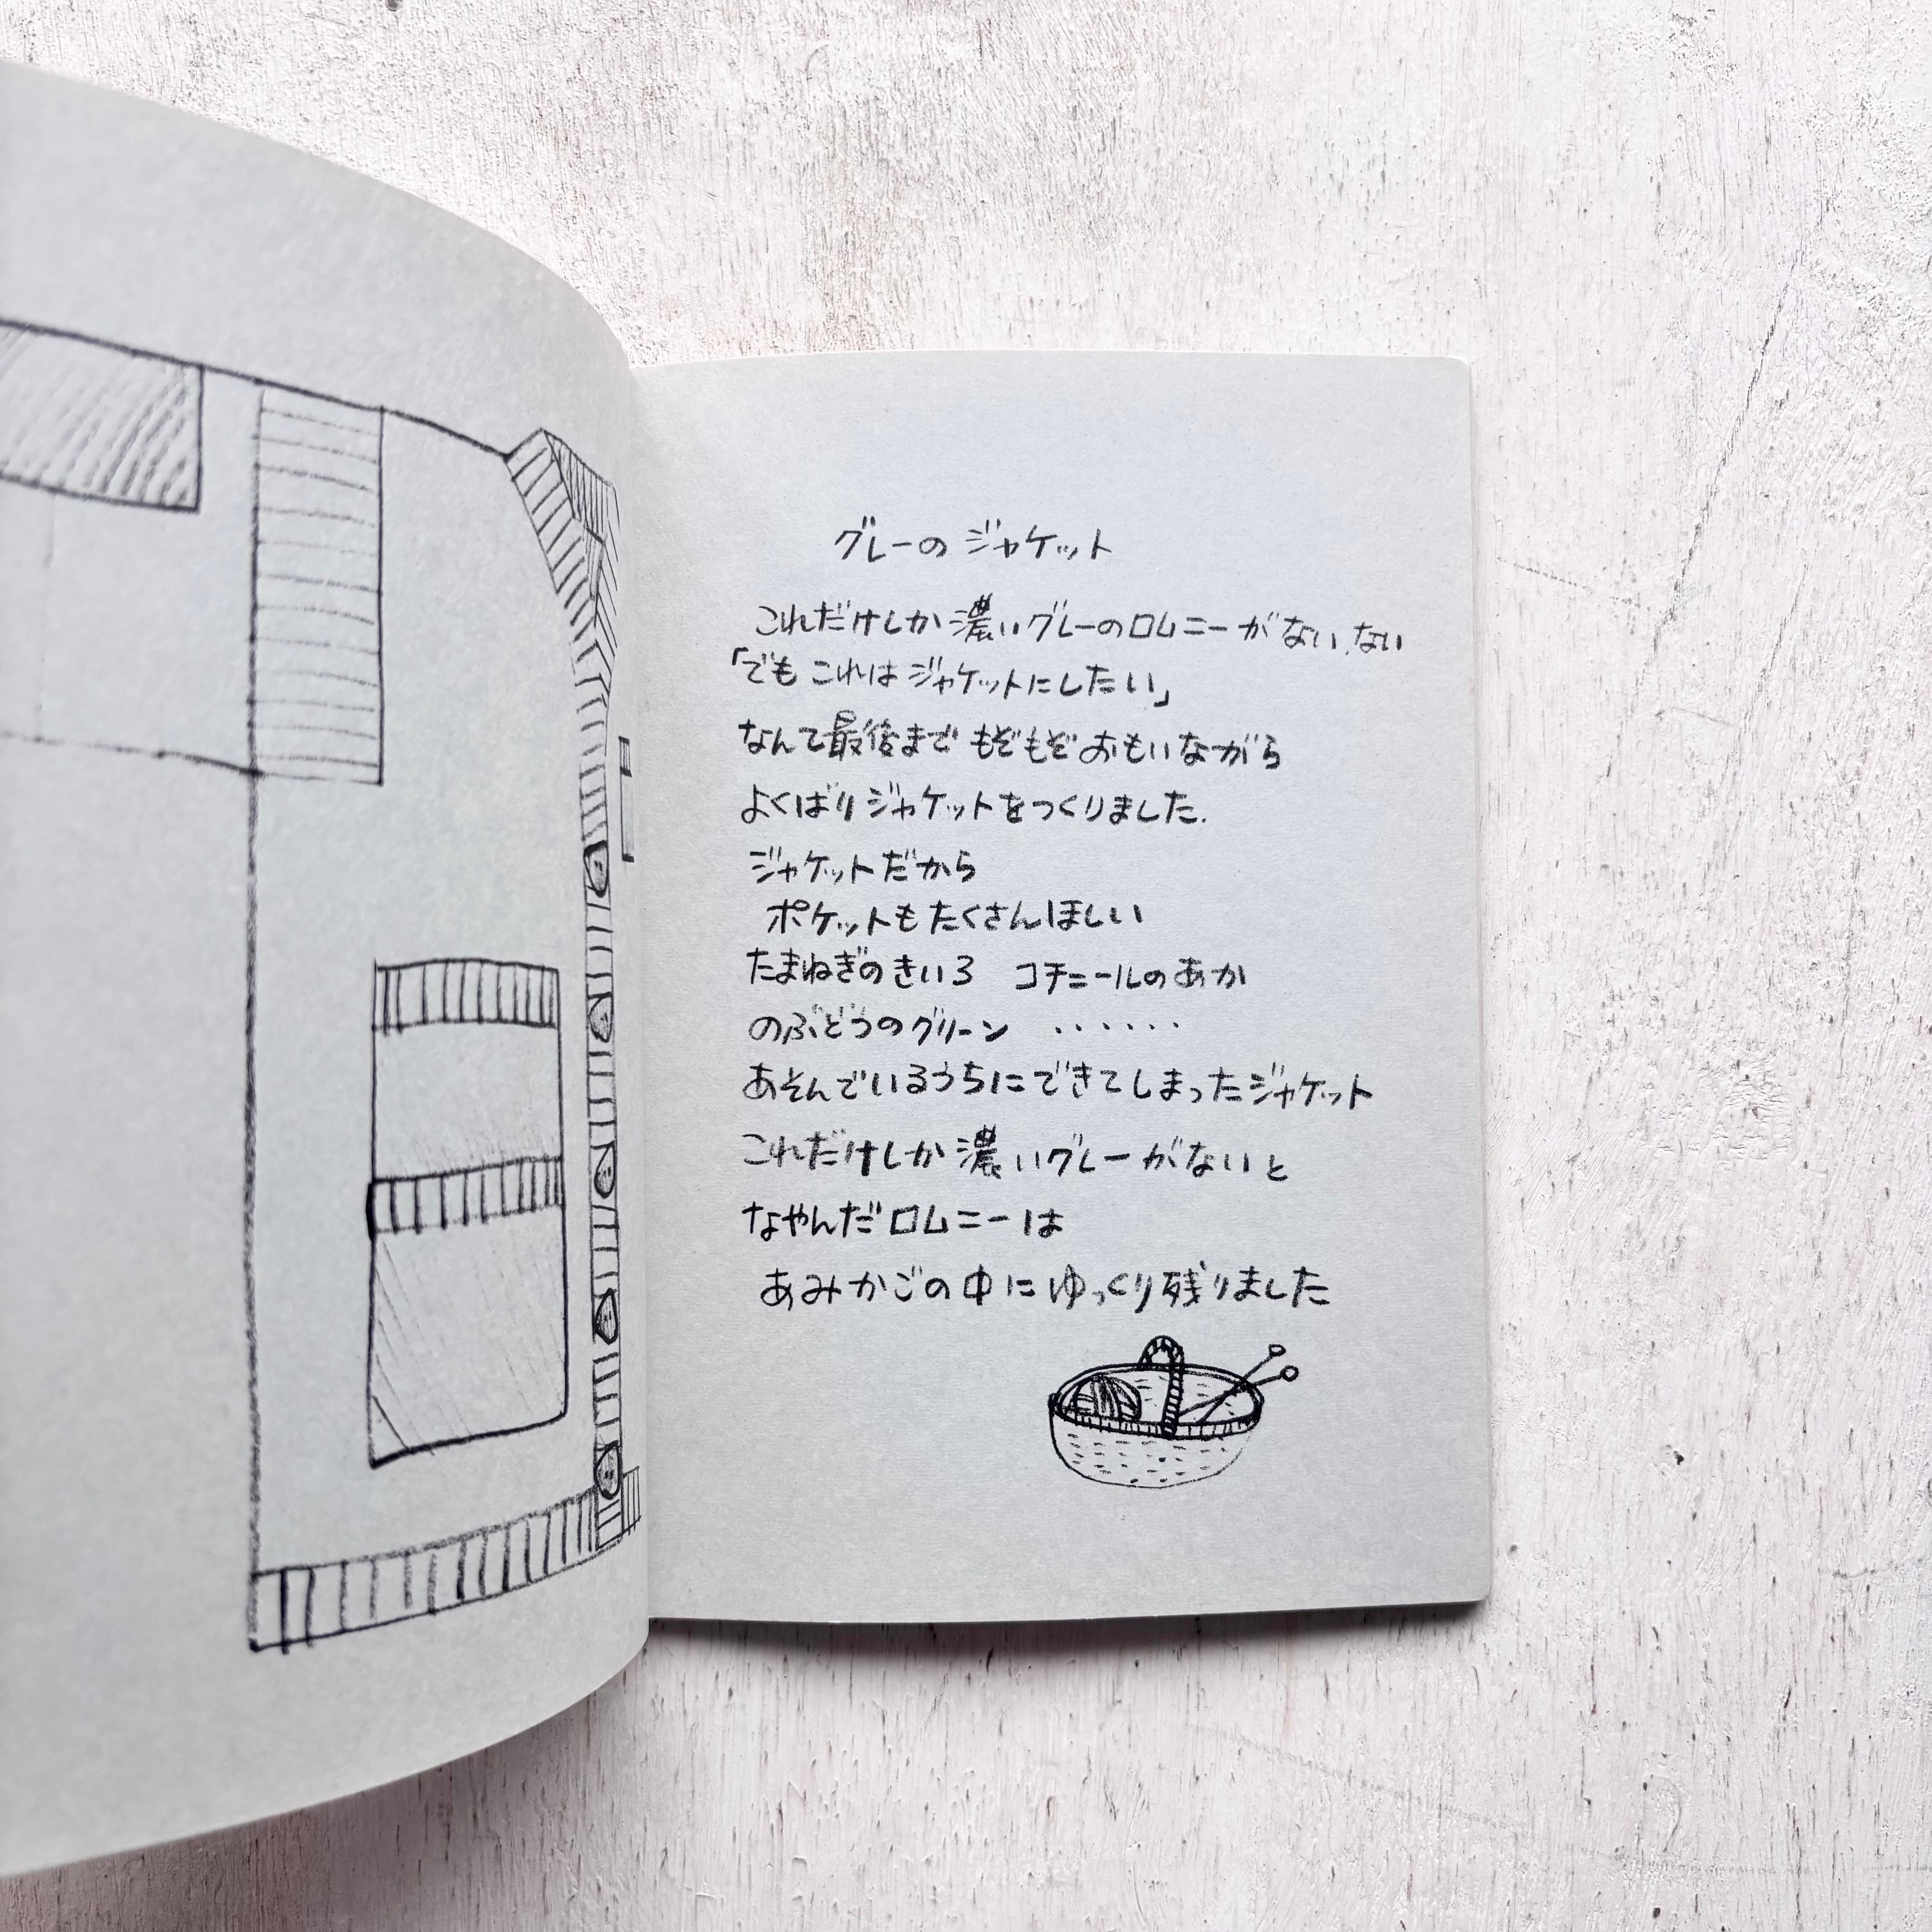 グレーのジャケット
これだけしか濃いグレーのロムニーがない、ない
「でも これは ジャケットにしたい」
なんて最後まで もぞもぞ おもいながら
よくばり ジャケットをつくりました.
ジャケットだから
ポケットもたくさんほしい
たまねぎのきいろ コチニールのあか
のぶどうのグリーン ・・・・・・
あそんでいるうちにできてしまったジャケット
これだけしか濃いグレーがないと
なやんだロムニーは
あみかごの中にゆっくり残りました